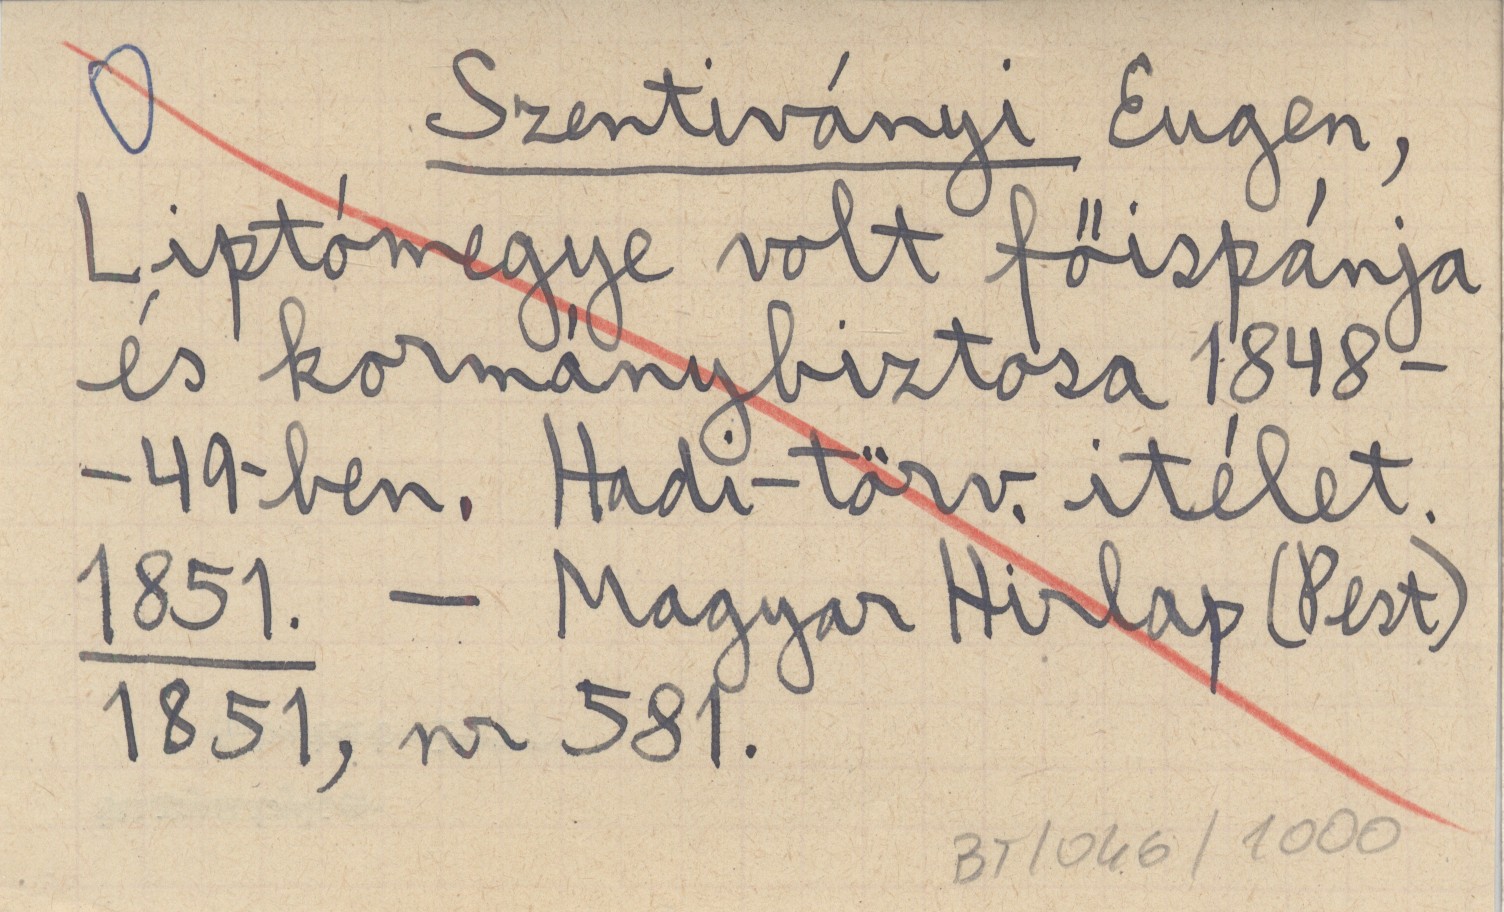 Szentiványi Eugen,
Liptómegye volt főispánja
és kormánybiztosa 1848-
-49-ben. Hadi-törv. itélet.
1851. — Magyar Hirlap (Pest)
1851, nr 581.
BT/046/1000